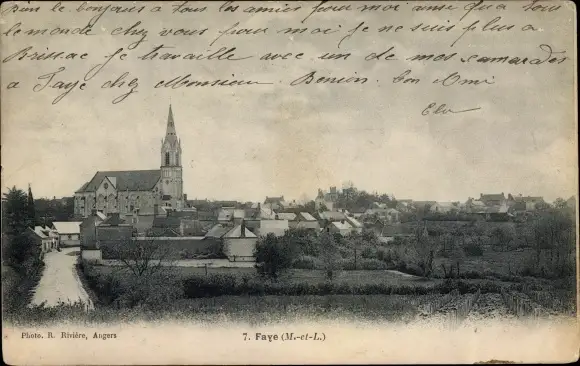 bien le bonjours a tous les amies pour moi ainsi qua tous
le monde chez vous pour moi je ne suis plus a
Brissac je travaille avec un de mos camarades
a Faye chez Monsieur Benion. ton ami
Photo. R. Rivière, Angers
7. Faye (M.-et-L.)